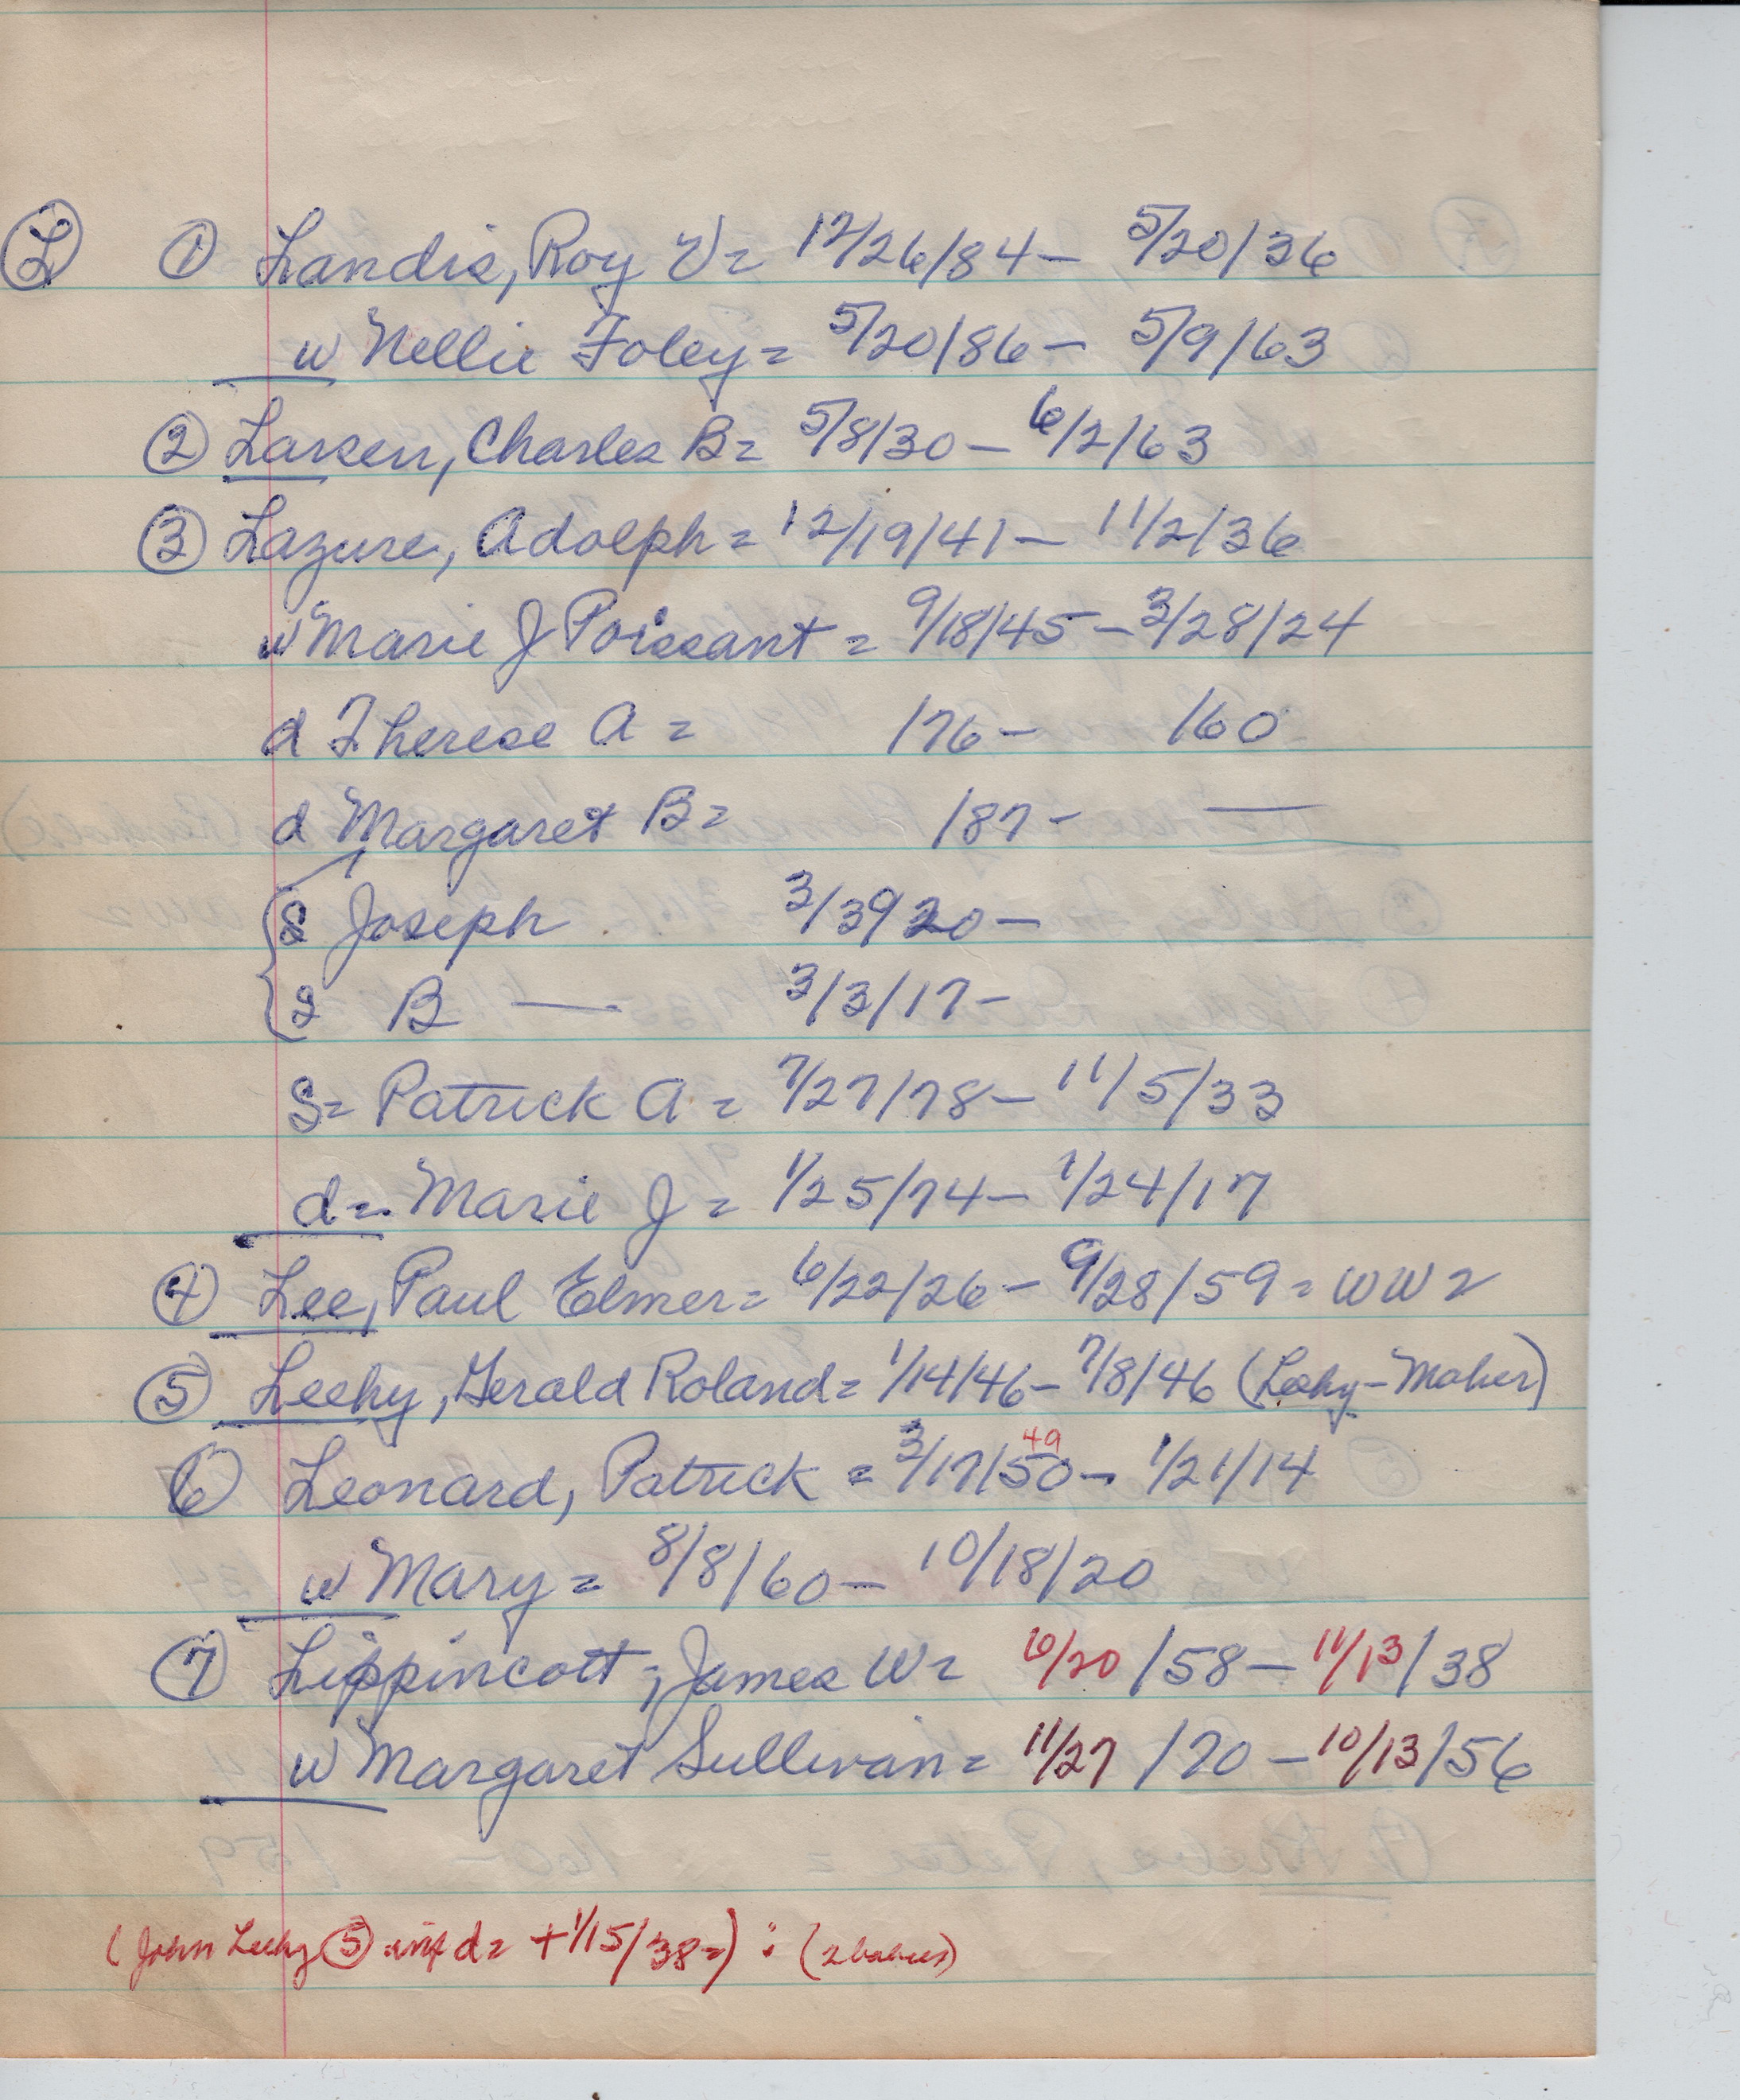 L ① Landis, Roy V = 12/26/84 - 5/20/36
w Nellie Foley = 5/20/86 - 5/9/63
② Larsen, Charles B = 5/8/30 - 6/2/63
③ Lazure, Adolph = 12/19/41 - 11/2/36
w Marie J Poissant = 9/18/45 - 3/28/24
d Therese A = /76 - /60
d Margaret B = /87 - —
{ s Joseph 3/3/20 -
{ s B — 3/3/17 -
s = Patrick A = 7/27/78 - 11/5/33
d = Marie J = 1/25/74 - 1/24/17
④ Lee, Paul Elmer = 6/22/26 - 9/28/59 = WW2
⑤ Leehy, Gerald Roland = 1/14/46 - 7/8/46 (Leehy-Maher)
49
⑥ Leonard, Patrick = 3/17/50 - 1/21/14
w Mary = 8/8/60 - 10/18/20
⑦ Lippincott, James W = 6/20/58 - 11/13/38
w Margaret Sullivan = 11/27/70 - 10/13/56
(John Leehy ⑤ inf d = + 1/15/38 =) : (2 babies)